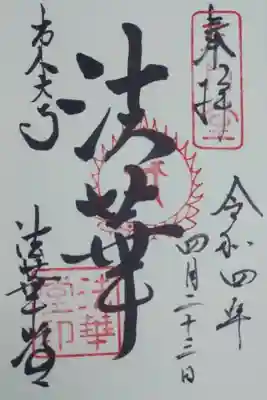 奉拝
令和四年
四月二十三日
法華
東大寺
法華堂
法華
堂印